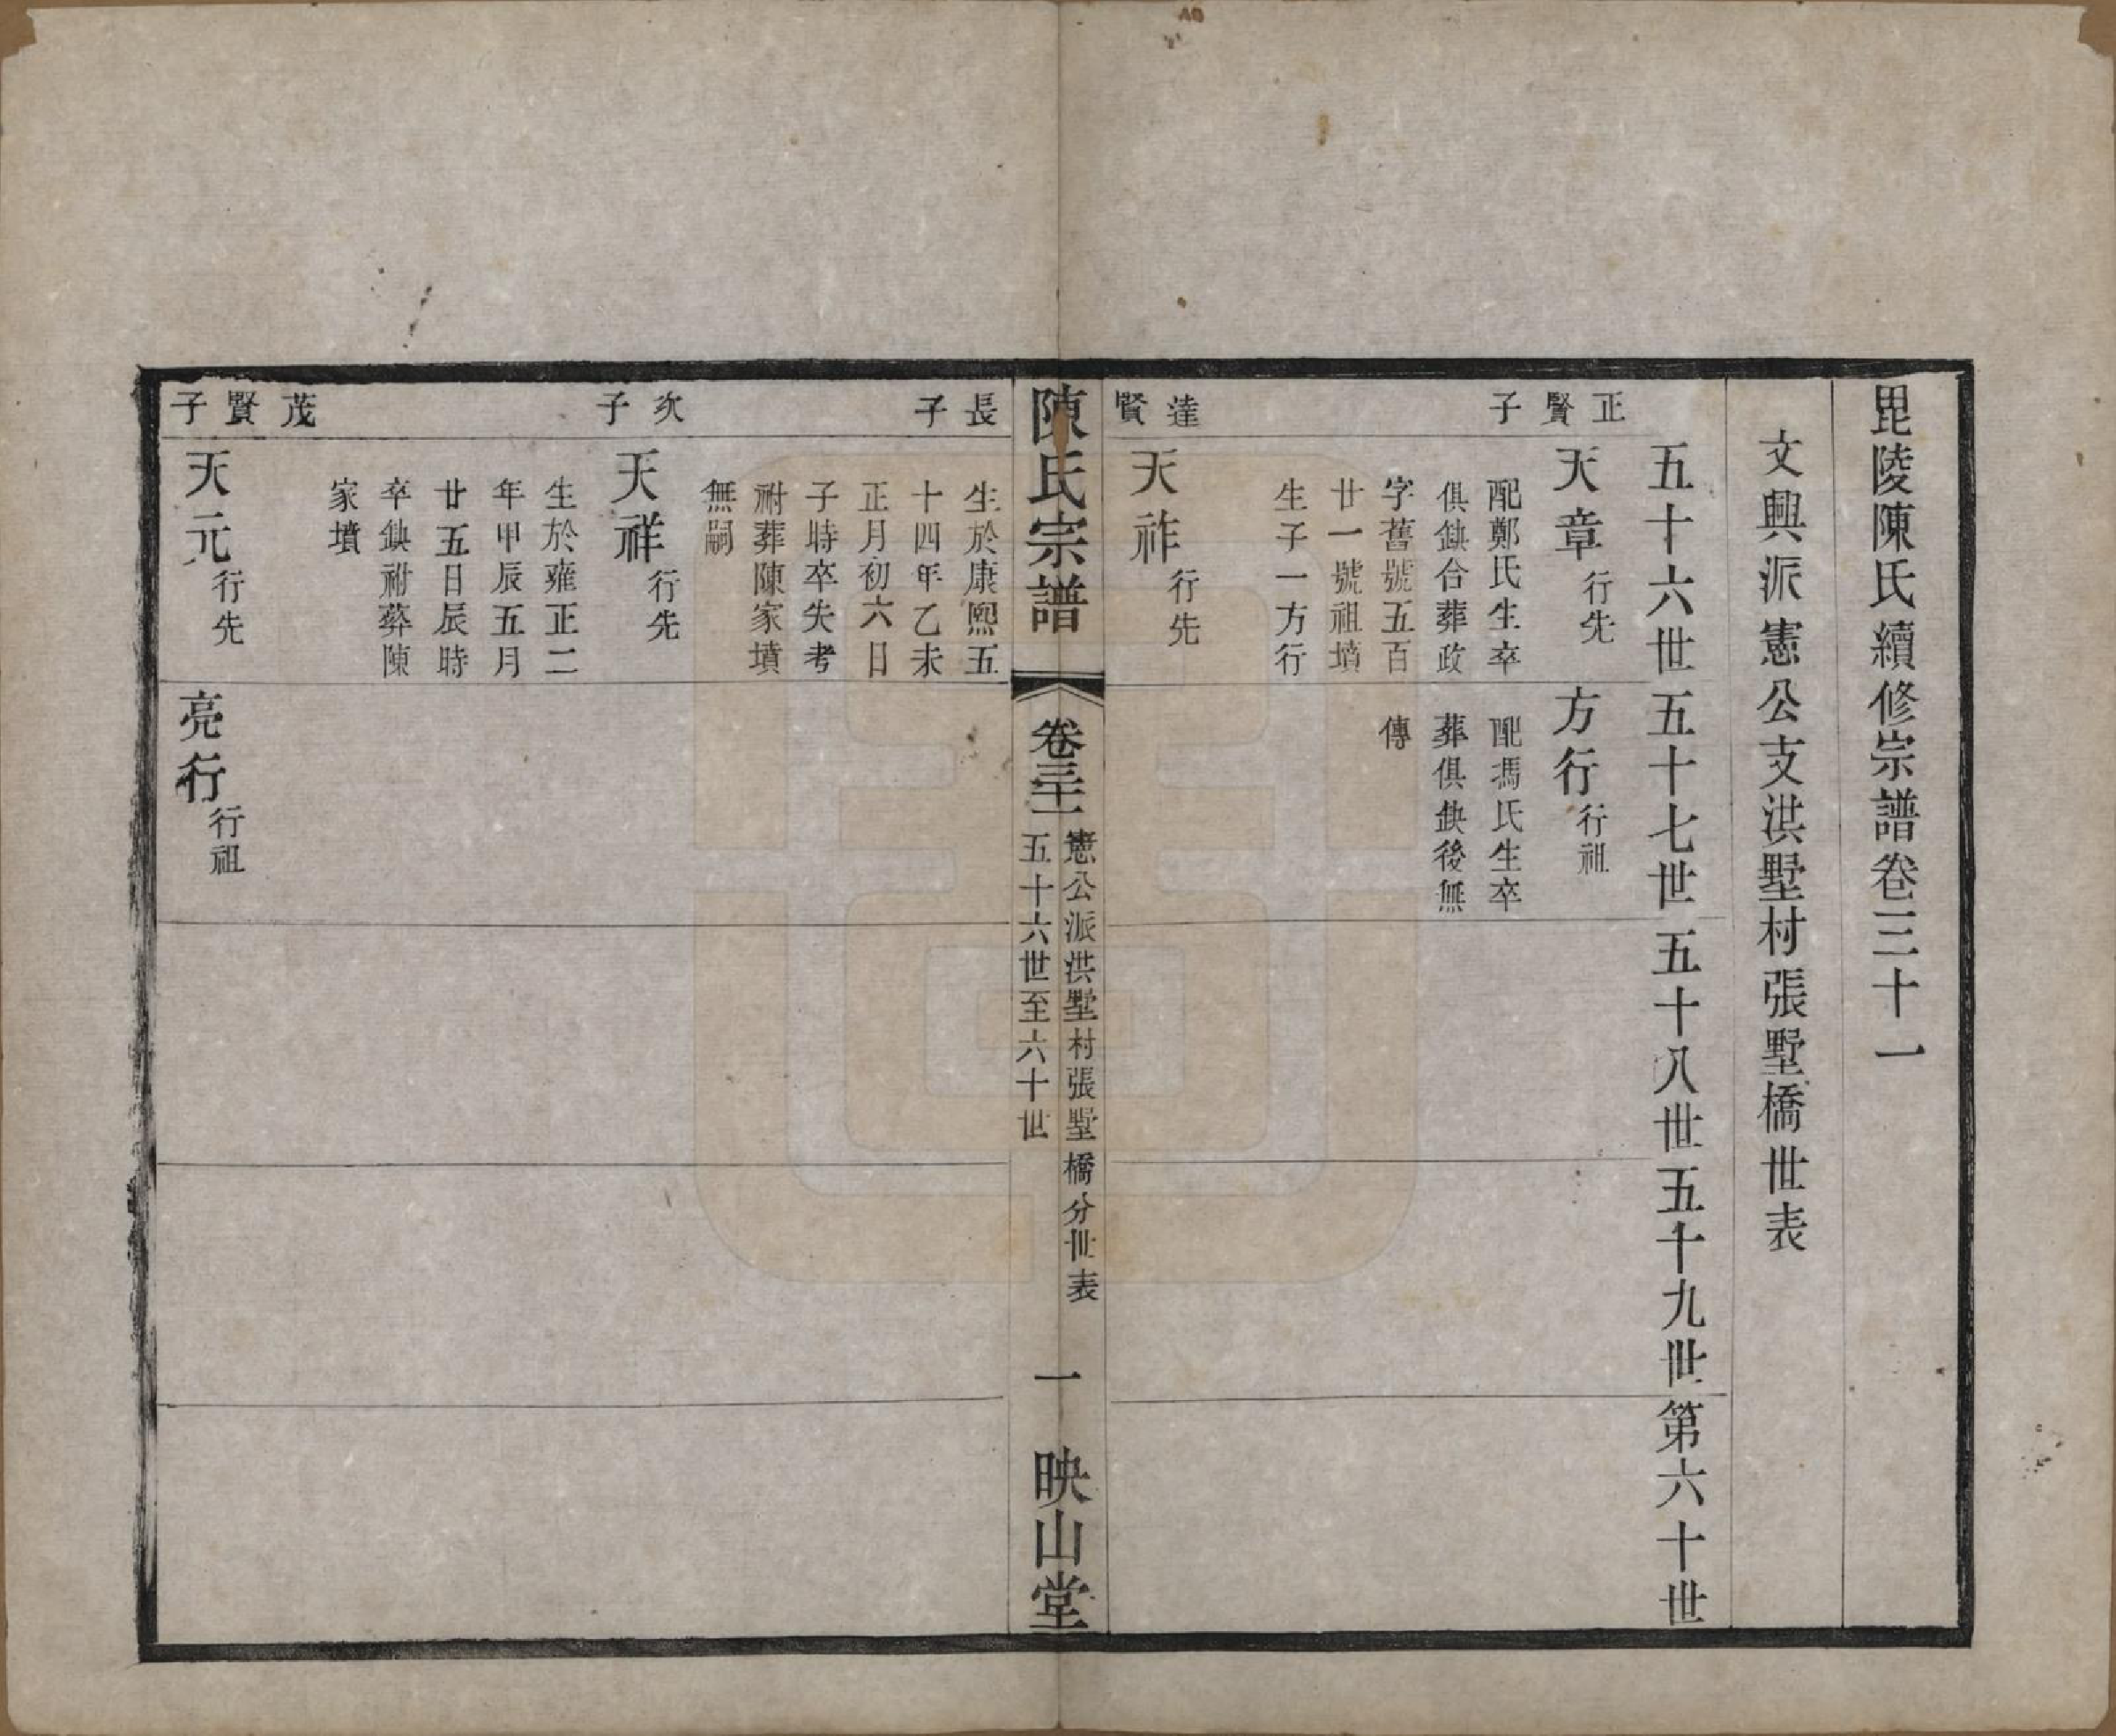 毘陵陳氏續修宗譜卷三十一
文興派憲公支洪墅村張墅橋世表
五十六世
五十七世
五十八世
五十九世
第六十世
正賢子
天章行先
配鄭氏生卒
俱缺合葬政
字舊號五百
廿一號祖墳
生子一方行
方行行祖
配馮氏生卒
葬俱缺後無
傳
達賢
天祚行先
陳氏宗譜
卷三十一
憲公派洪墅村張墅橋分世表
五十六世至六十世
一
映山堂
長子
生於康熙五
十四年乙未
正月初六日
子時卒失考
祔葬陳家墳
無嗣
次子
天祥行先
生於雍正二
年甲辰五月
廿五日辰時
卒缺祔葬陳
家墳
茂賢子
天元行先
亮行行祖